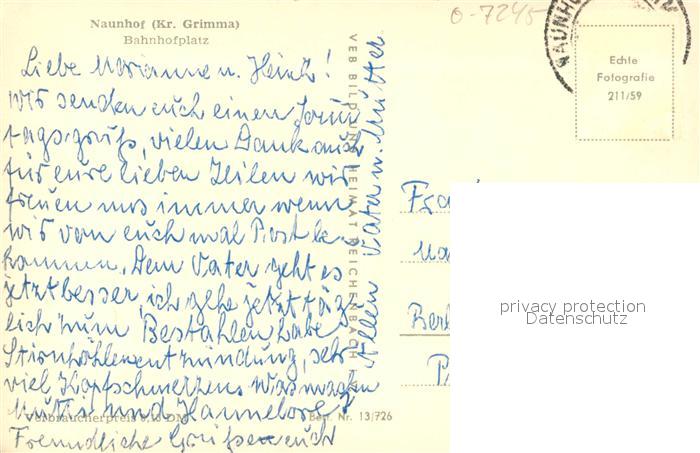 Naunhof (Kr. Grimma)
Bahnhofplatz
0-7245
NAUNHOF
Echte
Fotografie
211/59
Liebe Marianne u. Heinz!
wir senden euch einen Sonn
tagsgruß, vielen Dank auch
für eure lieben Zeilen wir
freuen uns immer wenn
wir von euch mal Post be
kommen. Dem Vater geht es
jetzt besser, ich gehe jetzt täg
lich zum Bestrahlen habe
Stirnhöhlenentzündung, sehr
viel Kopfschmerzen. Was machen
Mutti und Hannelore?
Freundliche Grüße euch
Allen Vater u. Mutter
VEB BILD UND HEIMAT REICHENBACH
Verbraucherpreis 0,15 DM
Best. Nr. 13/726
Fra
Ma
Berl
privacy protection
Datenschutz